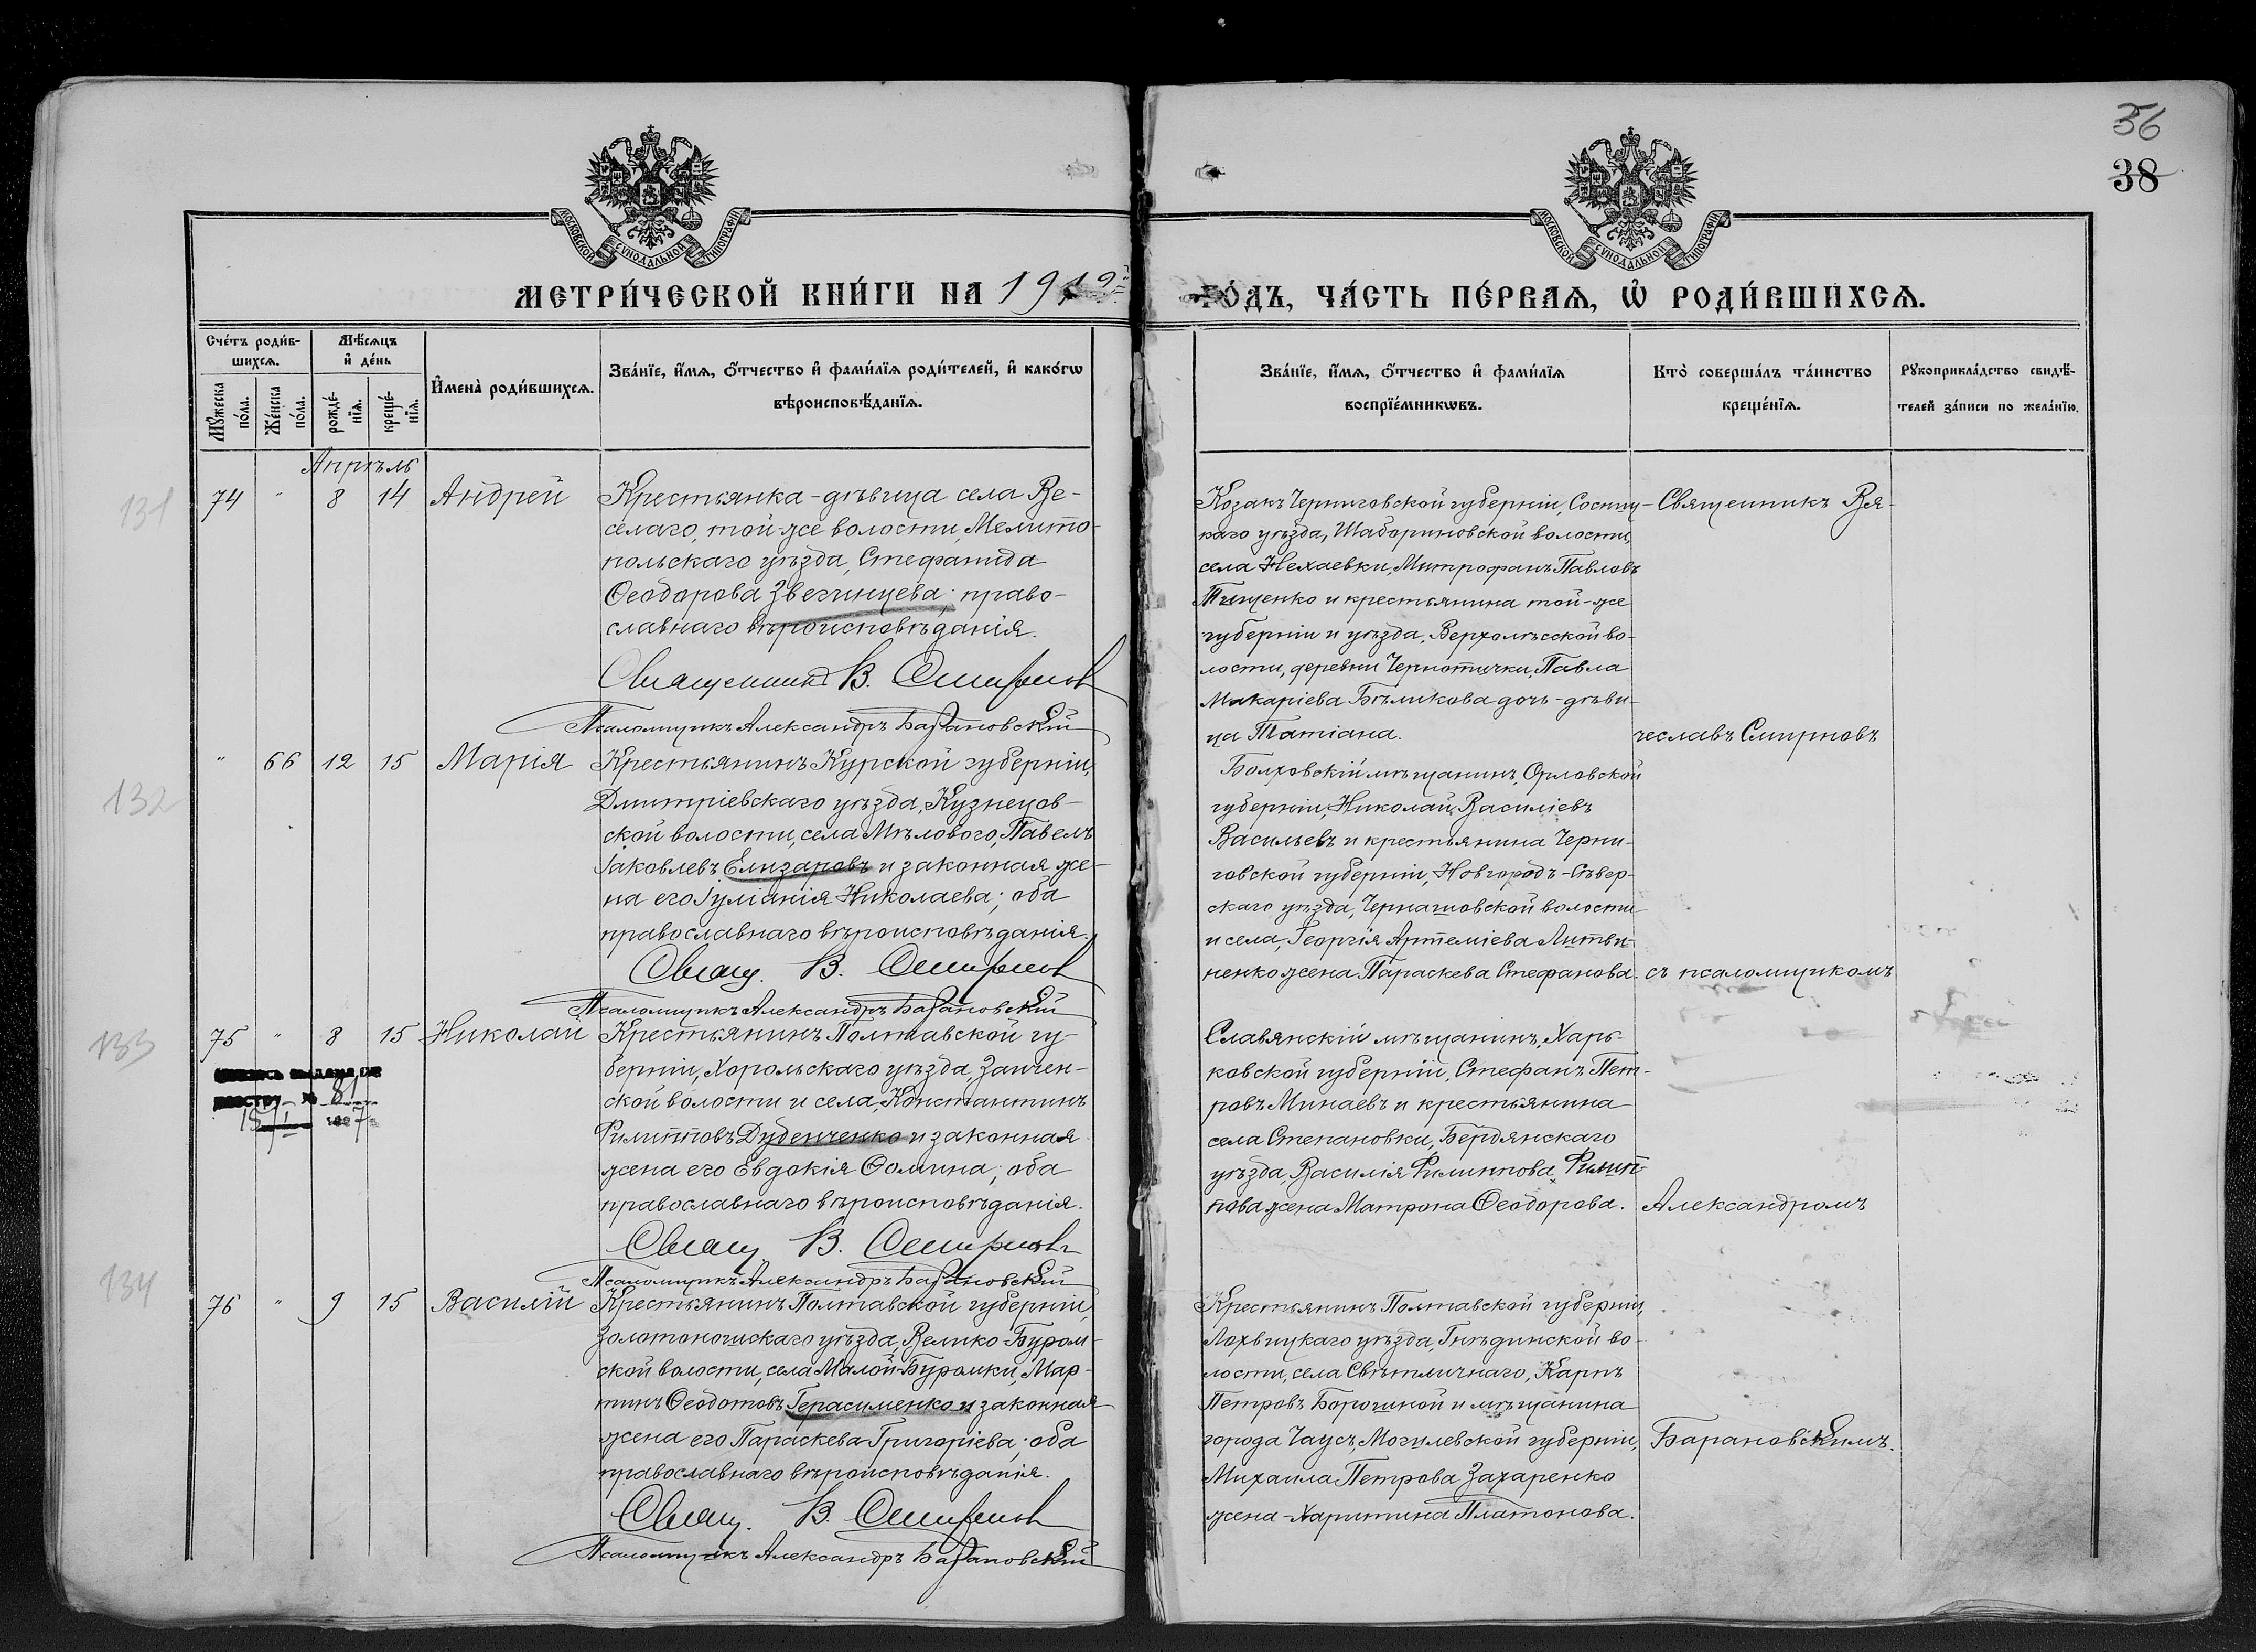 36
38
МОСКОВСКОЙ СѴНОДАЛЬНОЙ ТИПОГРАФІИ
МОСКОВСКОЙ СѴНОДАЛЬНОЙ ТИПОГРАФІИ
МЕТРИ́ЧЕСКОЙ КНИ́ГИ НА 1912й
ГО́ДЪ, ЧА́СТЬ ПЕ́РВАѦ, Ѡ҆ РОДИ́ВШИХСѦ.
Сче́тъ роди́в-
шихсѧ.
Мꙋ́жеска по́ла.
Же́нска по́ла.
Мѣ́сѧцъ
и҆ де́нь
рожде́-нїѧ.
креще́-нїѧ.
И҆мена̀ роди́вшихсѧ.
Зва́нїе, и҆́мѧ, ѻ҆́тчество и҆ фами́лїѧ роди́телей, и҆ како́гѡ
вѣроисповѣ́данїѧ.
Зва́нїе, и҆́мѧ, ѻ҆́тчество и҆ фами́лїѧ
воспрїе́мникѡвъ.
Кто̀ соверша́лъ та́инство
креще́нїѧ.
Рꙋкоприкла́дство свидѣ́-
телей за́писи по жела́нїю.
Апрѣль
131
74 " 8 14 Андрей
Крестьянка-дѣвица села Ве-
селаго, той-же волости, Мелито-
польскаго уѣзда, Стефанида
Ѳеодорова Звегинцева; право-
славнаго вѣроисповѣданія.
Священникъ В. Смирнов
Псаломщикъ Александръ Барановскій
Козакъ Черниговской губерніи, Сосниц-
каго уѣзда, Шабориновской волости,
села Нехаевки, Митрофанъ Павловъ
Тищенко и крестьянина той-же
губерніи и уѣзда, Верхолѣсской во-
лости, деревни Чернотички, Павла
Макаріева Бѣликова дочь-дѣви-
ца Татіана.
Священникъ Вя-
чеславъ Смирновъ
132
" 66 12 15 Марія
Крестьянинъ Курской губерніи,
Дмитріевскаго уѣзда, Кузнецов-
ской волости, села Мѣлового, Павелъ
Іаковлевъ Елизаровъ и законная же-
на его Іуліанія Николаева; оба
православнаго вѣроисповѣданія.
Свящ. В. Смирнов
Псаломщикъ Александръ Барановскій
Болховскій мѣщанинъ, Орловской
губерніи, Николай Василіевъ
Васильевъ и крестьянина Черни-
говской губерніи, Новгородъ-Сѣвер-
скаго уѣзда, Чернацовской волости
и села, Георгія Артеміева Литви-
ненко жена Параскева Стефанова.
съ псаломщикомъ
133
75 " 8 15 Николай
Крестьянинъ Полтавской гу-
берніи, Хорольскаго уѣзда, Заичен-
ской волости и села, Константинъ
Филипповъ Дубенченко и законная
жена его Евдокія Ѳомина; оба
православнаго вѣроисповѣданія.
Свящ. В. Смирновъ
Псаломщикъ Александръ Барановскій
Славянскій мѣщанинъ, Харь-
ковской губерніи, Стефанъ Пет-
ровъ Минаевъ и крестьянина
села Степановки, Бердянскаго
уѣзда, Василія Филиппова Филип-
пова жена Матрона Ѳеодорова.
Александромъ
134
76 " 9 15 Василій
Крестьянинъ Полтавской губерніи,
Золотоношскаго уѣзда, Велико-Буром-
ской волости, села Малой-Буромки, Мар-
тинъ Ѳеодотовъ Герасименко и законная
жена его Параскева Григоріева; оба
православнаго вѣроисповѣданія.
Свящ. В. Смирнов
Псаломщикъ Александръ Барановскій
Крестьянинъ Полтавской губерніи,
Лохвицкаго уѣзда, Гнѣдинской во-
лости, села Свѣтличнаго, Карпъ
Петровъ Борошной и мѣщанина
города Чаусъ, Могилевской губерніи,
Михаила Петрова Захаренко
жена-Харитина Платонова.
Барановскимъ.